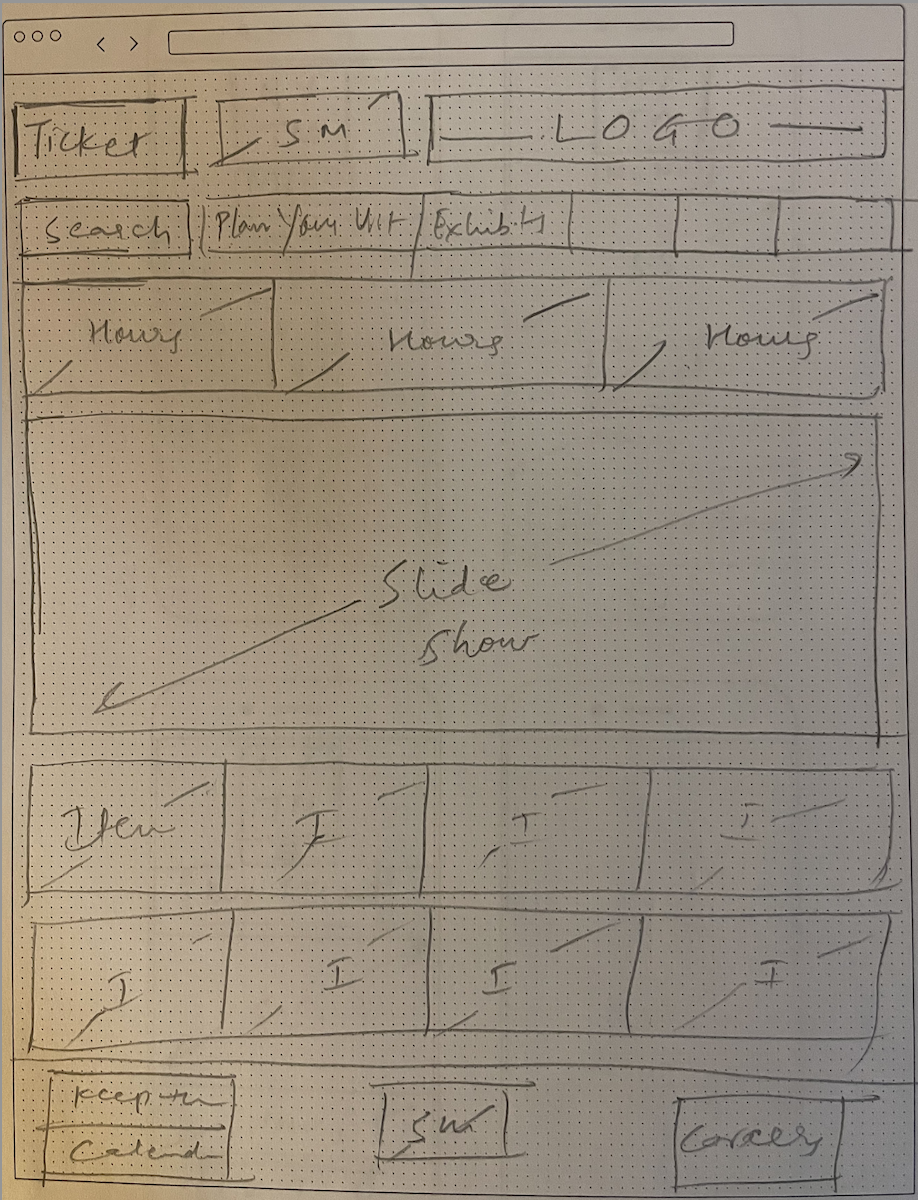 Ticket
SM
LOGO
Search
Plan Your Visit
Exhibits
Hours
Hours
Hours
Slide
Show
Item
I
I
I
I
I
I
I
SM
Careers